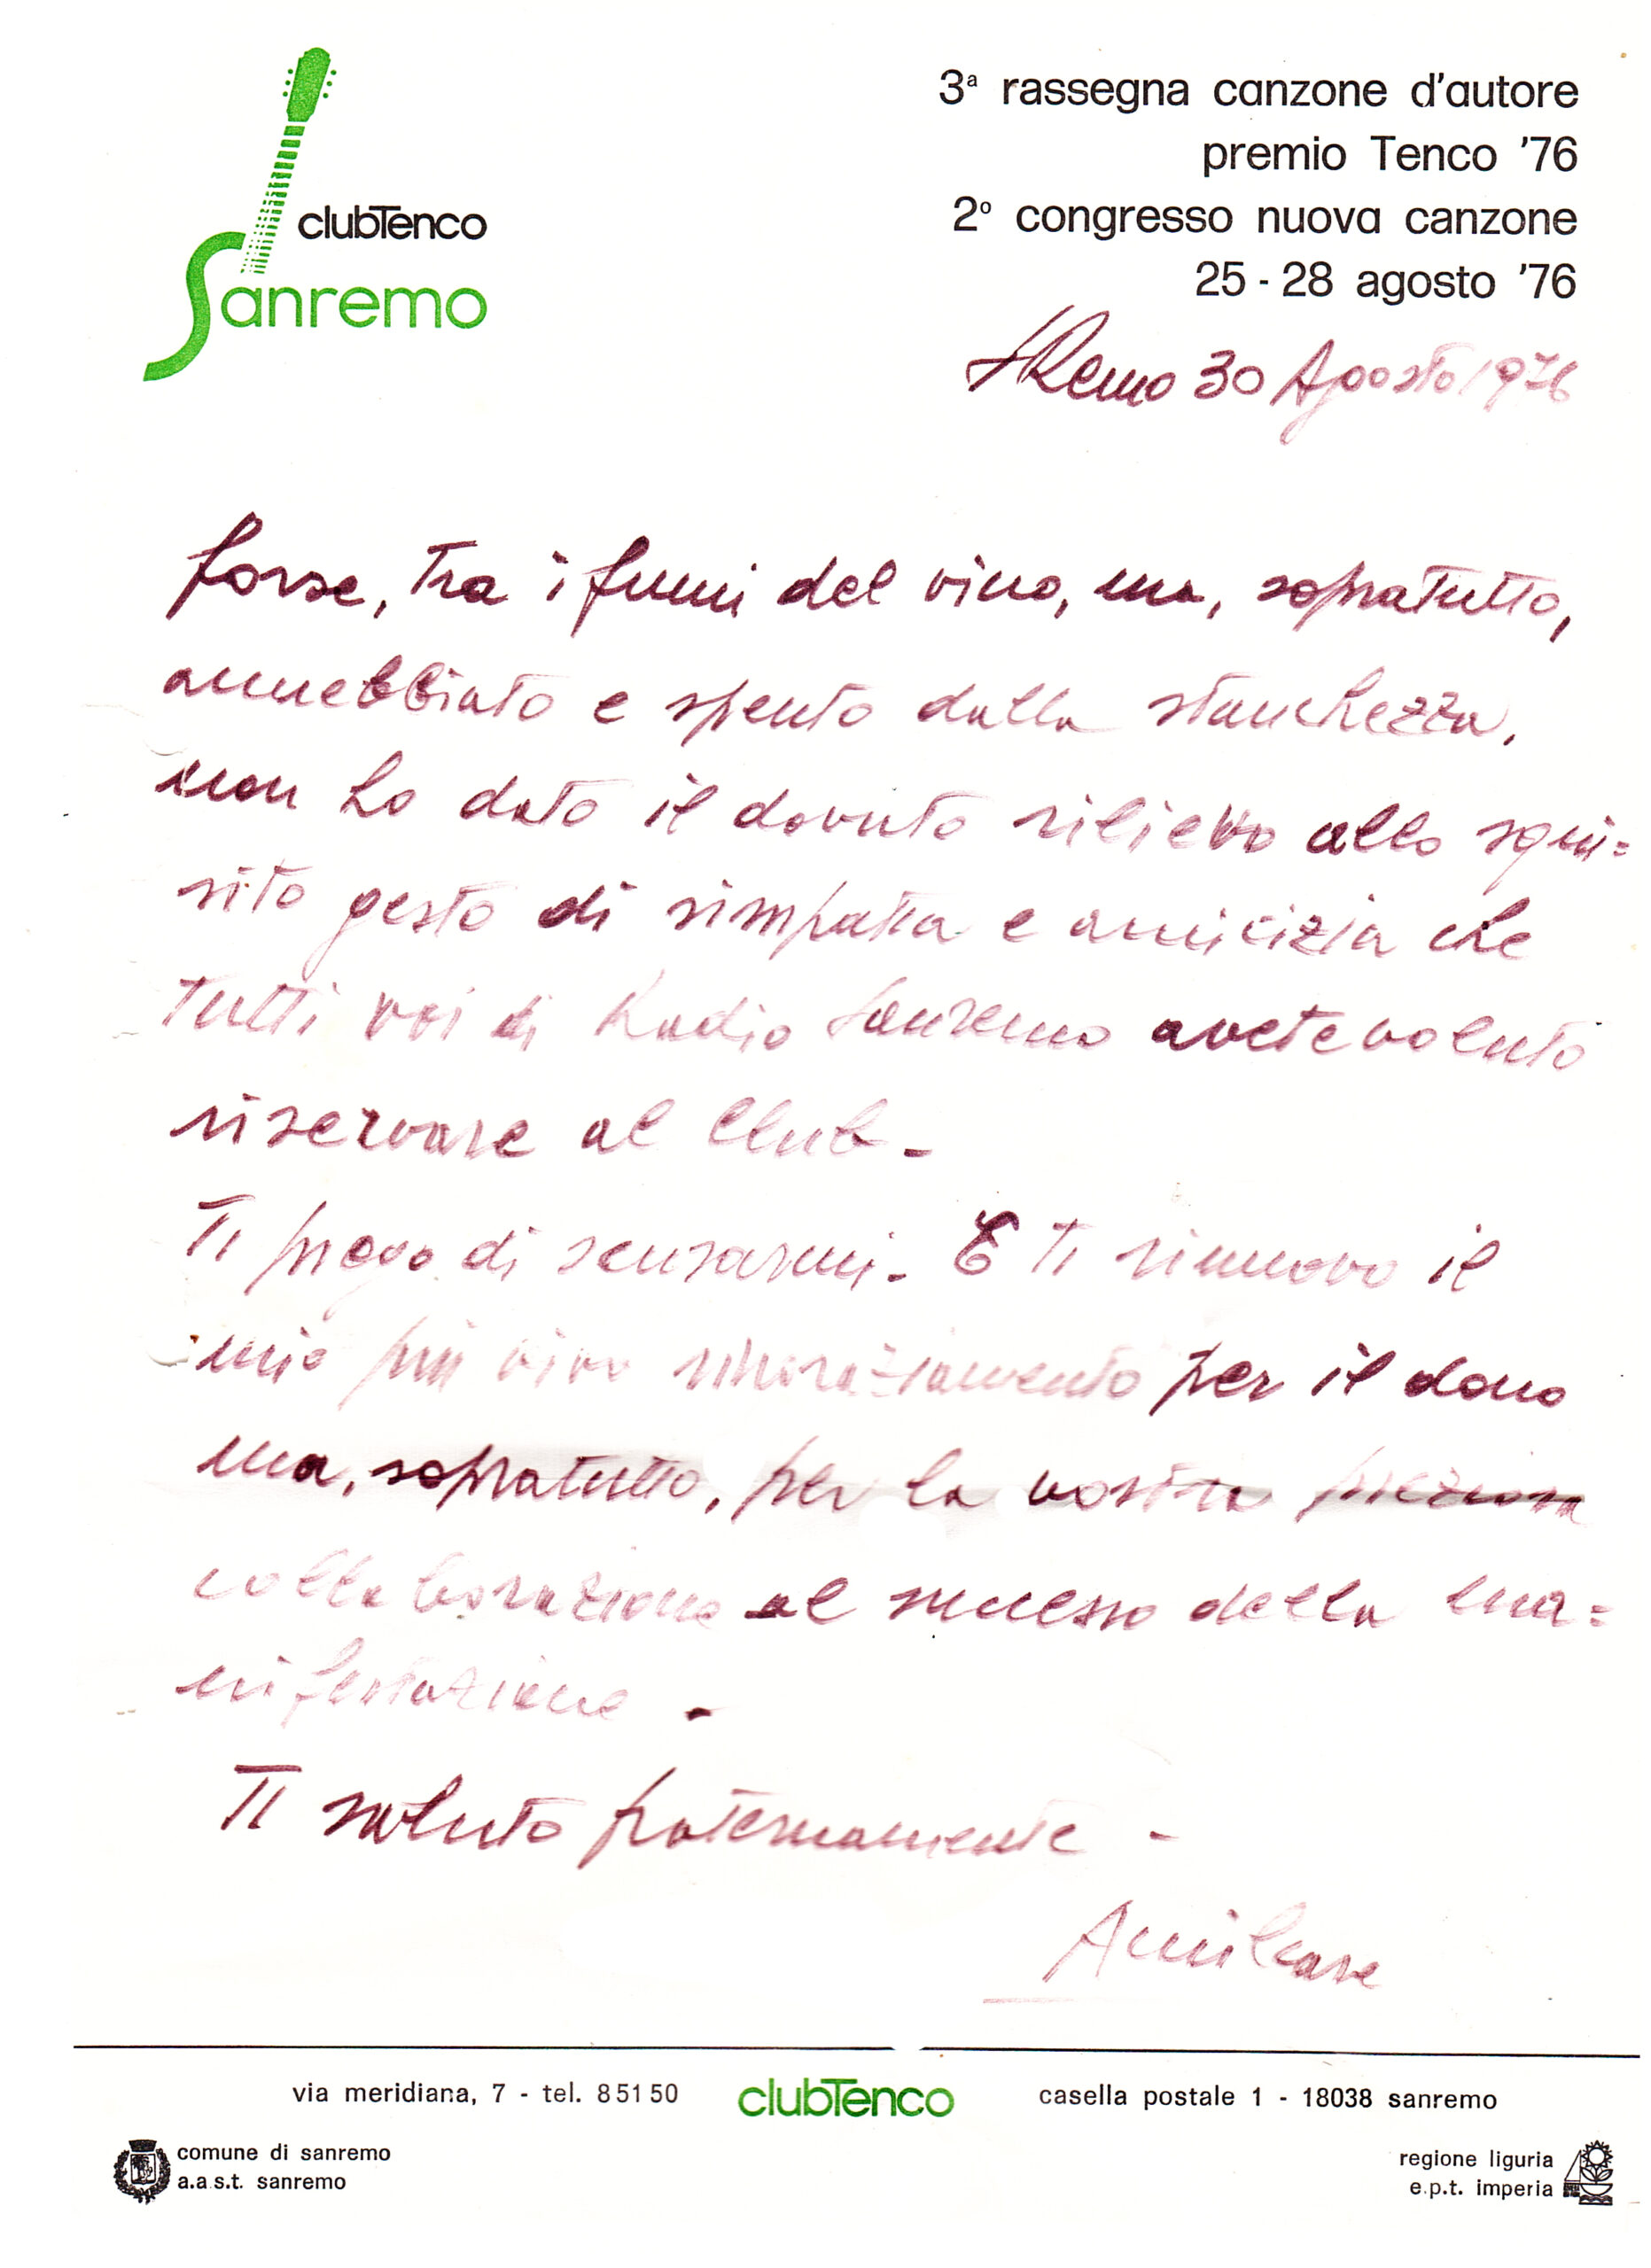 3ª rassegna canzone d'autore
premio Tenco '76
2º congresso nuova canzone
25 - 28 agosto '76
clubTenco
Sanremo
SRemo 30 Agosto 1976
forse, tra i fumi del vino, ma, sopratutto,
annebbiato e spento dalla stanchezza,
non ho dato il dovuto rilievo allo squi=
sito gesto di simpatia e amicizia che
tutti voi di Radio Sanremo avete voluto
riservare al Club -
Ti prego di scusarmi - E Ti rinnovo il
mio più vivo ringraziamento per il dono
ma, sopratutto, per la vostra preziosa
collaborazione al successo della ma=
nifestazione -
Ti saluto fraternamente -
Amilcare
via meridiana, 7 - tel. 85150 clubTenco casella postale 1 - 18038 sanremo
comune di sanremo
a.a.s.t. sanremo
regione liguria
e.p.t. imperia